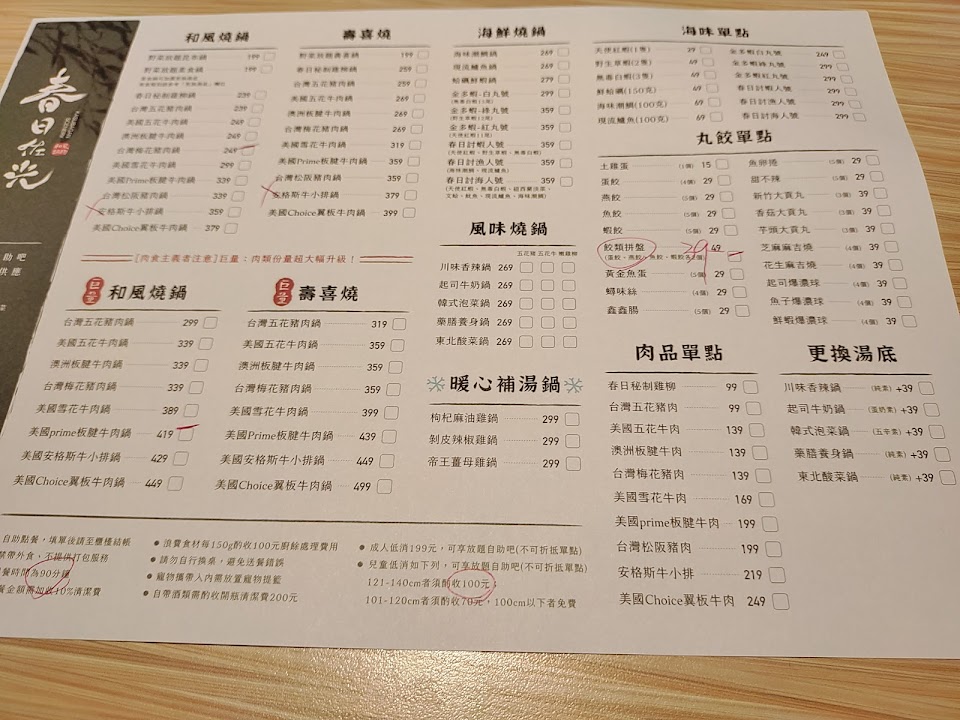 春日在光
助吧
供應
和風燒鍋
野菜放題蔬食鍋 199
野菜放題素食鍋 199
春日秘制雞柳鍋 239
台灣五花豬肉鍋 239
美國五花牛肉鍋 249
澳洲板腱牛肉鍋 249
台灣梅花豬肉鍋 249
美國雪花牛肉鍋 299
美國Prime板腱牛肉鍋 339
台灣松阪豬肉鍋 339
安格斯牛小排鍋 359
美國Choice翼板牛肉鍋 379
壽喜燒
野菜放題壽喜鍋 199
春日秘制雞柳鍋 259
台灣五花豬肉鍋 259
美國五花牛肉鍋 269
澳洲板腱牛肉鍋 269
台灣梅花豬肉鍋 269
美國雪花牛肉鍋 319
美國Prime板腱牛肉鍋 359
台灣松阪豬肉鍋 359
安格斯牛小排鍋 379
美國Choice翼板牛肉鍋 399
[肉食主義者注意] 巨量：肉類份量超大幅升級！
巨量 和風燒鍋
台灣五花豬肉鍋 299
美國五花牛肉鍋 339
澳洲板腱牛肉鍋 339
台灣梅花豬肉鍋 339
美國雪花牛肉鍋 389
美國prime板腱牛肉鍋 419
美國安格斯牛小排鍋 429
美國Choice翼板牛肉鍋 449
巨量 壽喜燒
台灣五花豬肉鍋 319
美國五花牛肉鍋 359
澳洲板腱牛肉鍋 359
台灣梅花豬肉鍋 359
美國雪花牛肉鍋 399
美國Prime板腱牛肉鍋 439
美國安格斯牛小排鍋 449
美國Choice翼板牛肉鍋 499
海鮮燒鍋
海味潮鯛鍋 269
現流鱸魚鍋 269
蛤蠣鮮蝦鍋 279
金多蝦-白丸號 299
金多蝦-綠丸號 359
金多蝦-紅丸號 359
春日討蝦人號 359
(天使紅蝦、野生草蝦、無毒白蝦)
春日討漁人號 359
(海味潮鯛、現流鱸魚)
春日討海人號 359
風味燒鍋
五花豬 五花牛 嫩雞柳
川味香辣鍋 269
起司牛奶鍋 269
韓式泡菜鍋 269
藥膳養身鍋 269
東北酸菜鍋 269
暖心補湯鍋
枸杞麻油雞鍋 299
剝皮辣椒雞鍋 299
帝王薑母雞鍋 299
海味單點
天使紅蝦(1隻) 39
野生草蝦(2隻) 69
無毒白蝦(3隻) 69
鮮蛤蠣(150克) 69
海味潮鯛(100克) 69
現流鱸魚(100克) 69
金多蝦白丸號 249
金多蝦綠丸號 299
金多蝦紅丸號 299
春日討蝦人號 299
春日討漁人號 299
春日討海人號 299
丸餃單點
土雞蛋 (1個) 15
蛋餃 (4個) 29
燕餃 (5個) 29
魚餃 (5個) 29
蝦餃 (5個) 29
餃類拼盤 49
29
(蛋餃、燕餃、魚餃、蝦餃各2個)
黃金魚蛋 (5個) 29
蟳味絲 (4個) 29
鑫鑫腸 (5個) 29
魚卵捲 (5個) 29
甜不辣 (5個) 29
新竹大貢丸 (3個) 39
香菇大貢丸 (3個) 39
芋頭大貢丸 (3個) 39
芝麻麻吉燒 (4個) 39
花生麻吉燒 (4個) 39
起司爆濃球 (4個) 39
魚子爆濃球 (4個) 39
鮮蝦爆濃球 (4個) 39
肉品單點
春日秘制雞柳 99
台灣五花豬肉 99
美國五花牛肉 139
澳洲板腱牛肉 139
台灣梅花豬肉 139
美國雪花牛肉 169
美國prime板腱牛肉 199
台灣松阪豬肉 199
安格斯牛小排 219
美國Choice翼板牛肉 249
更換湯底
川味香辣鍋 (純素) +39
起司牛奶鍋 (蛋奶素) +39
韓式泡菜鍋 (五辛素) +39
藥膳養身鍋 (純素) +39
東北酸菜鍋 (純素) +39
自助點餐，填單後請至櫃檯結帳
禁帶外食，不提供打包服務
餐時間為90分鐘
餐金額需加收10%清潔費
● 浪費食材每150g酌收100元廚餘處理費用
● 請勿自行換桌，避免送餐錯誤
● 寵物攜帶入內需放置寵物提籃
● 自帶酒類需酌收開瓶清潔費200元
● 成人低消199元，可享放題自助吧(不可折抵單點)
● 兒童低消如下列，可享放題自助吧(不可折抵單點)
121-140cm者須酌收100元；
101-120cm者須酌收70元，100cm以下者免費